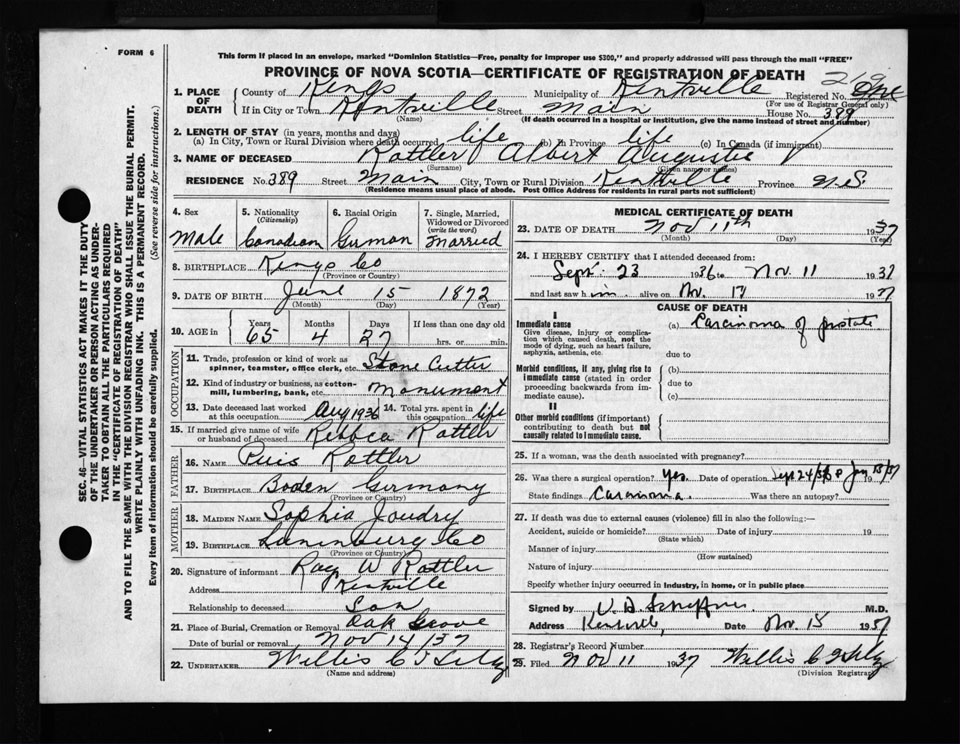 FORM 6
This form if placed in an envelope, marked "Dominion Statistics—Free, penalty for improper use $300," and properly addressed will pass through the mail "FREE"
PROVINCE OF NOVA SCOTIA—CERTIFICATE OF REGISTRATION OF DEATH
1. PLACE OF DEATH County of Kings Municipality of Kentville Registered No.
(For use of Registrar General only)
If in City or Town Kentville Street Main House No. 389
(Name) (If death occurred in a hospital or institution, give the name instead of street and number)
2. LENGTH OF STAY (in years, months and days)
(a) In City, Town or Rural Division where death occurred life (b) In Province life (c) In Canada (if immigrant)
3. NAME OF DECEASED Rattler Albert Auguste
(Surname) (Given name or names)
RESIDENCE No. 389 Street Main City, Town or Rural Division Kentville Province N.S.
(Residence means usual place of abode. Post Office Address for residents in rural parts not sufficient)
SEC. 46—VITAL STATISTICS ACT MAKES IT THE DUTY
OF THE UNDERTAKER OR PERSON ACTING AS UNDER-
TAKER TO OBTAIN ALL THE PARTICULARS REQUIRED
IN THE "CERTIFICATE OF REGISTRATION OF DEATH"
AND TO FILE THE SAME WITH THE DIVISION REGISTRAR WHO SHALL ISSUE THE BURIAL PERMIT.
WRITE PLAINLY WITH UNFADING INK. THIS IS A PERMANENT RECORD.
Every item of information should be carefully supplied. (See reverse side for instructions.)
4. Sex Male
5. Nationality (Citizenship) Canadian
6. Racial Origin German
7. Single, Married, Widowed or Divorced (write the word) Married
8. BIRTHPLACE Kings Co
(Province or Country)
9. DATE OF BIRTH June 15 1872
(Month) (Day) (Year)
10. AGE in Years 65 Months 4 Days 27 If less than one day old
hrs. or min.
OCCUPATION
11. Trade, profession or kind of work as spinner, teamster, office clerk, etc. Stone Cutter
12. Kind of industry or business, as cotton-mill, lumbering, bank, etc. Monument
13. Date deceased last worked at this occupation Aug 1936 14. Total yrs. spent in this occupation life
15. If married give name of wife or husband of deceased Rebbca Rattler
FATHER
16. NAME Puis Rattler
17. BIRTHPLACE Boden Germany
(Province or Country)
MOTHER
18. MAIDEN NAME Sophia Joudry
19. BIRTHPLACE Lunenburg Co
(Province or Country)
20. Signature of informant Ray W Rattler
Address Kentville
Relationship to deceased Son
21. Place of Burial, Cremation or Removal Oak Grove
Date of burial or removal Nov 14/37
22. UNDERTAKER Willis C
(Name and address)
MEDICAL CERTIFICATE OF DEATH
23. DATE OF DEATH Nov 11th 1937
(Month) (Day) (Year)
24. I HEREBY CERTIFY that I attended deceased from:
Sept. 23 1936 to Nov. 11 1937
and last saw him alive on Nov. 1937
CAUSE OF DEATH
I
Immediate cause (a) Carcinoma of prostate
Give disease, injury or complication which caused death, not the mode of dying, such as heart failure, asphyxia, asthenia, etc.
due to
Morbid conditions, if any, giving rise to immediate cause (stated in order proceeding backwards from immediate cause).
(b)
due to
(c)
II
Other morbid conditions (if important) contributing to death but not causally related to immediate cause.
25. If a woman, was the death associated with pregnancy?
26. Was there a surgical operation? yes. Date of operation Sept 24/36 & Jan 13/37 19
State findings Carcinoma. Was there an autopsy?
27. If death was due to external causes (violence) fill in also the following:—
Accident, suicide or homicide? Date of injury 19
(State which)
Manner of injury
(How sustained)
Nature of injury
Specify whether injury occurred in industry, in home, or in public place
Signed by M.D.
Address Kentville, Date Nov. 15 1937
28. Registrar's Record Number
29. Filed Nov 11 1937 Willis C
(Division Registrar)